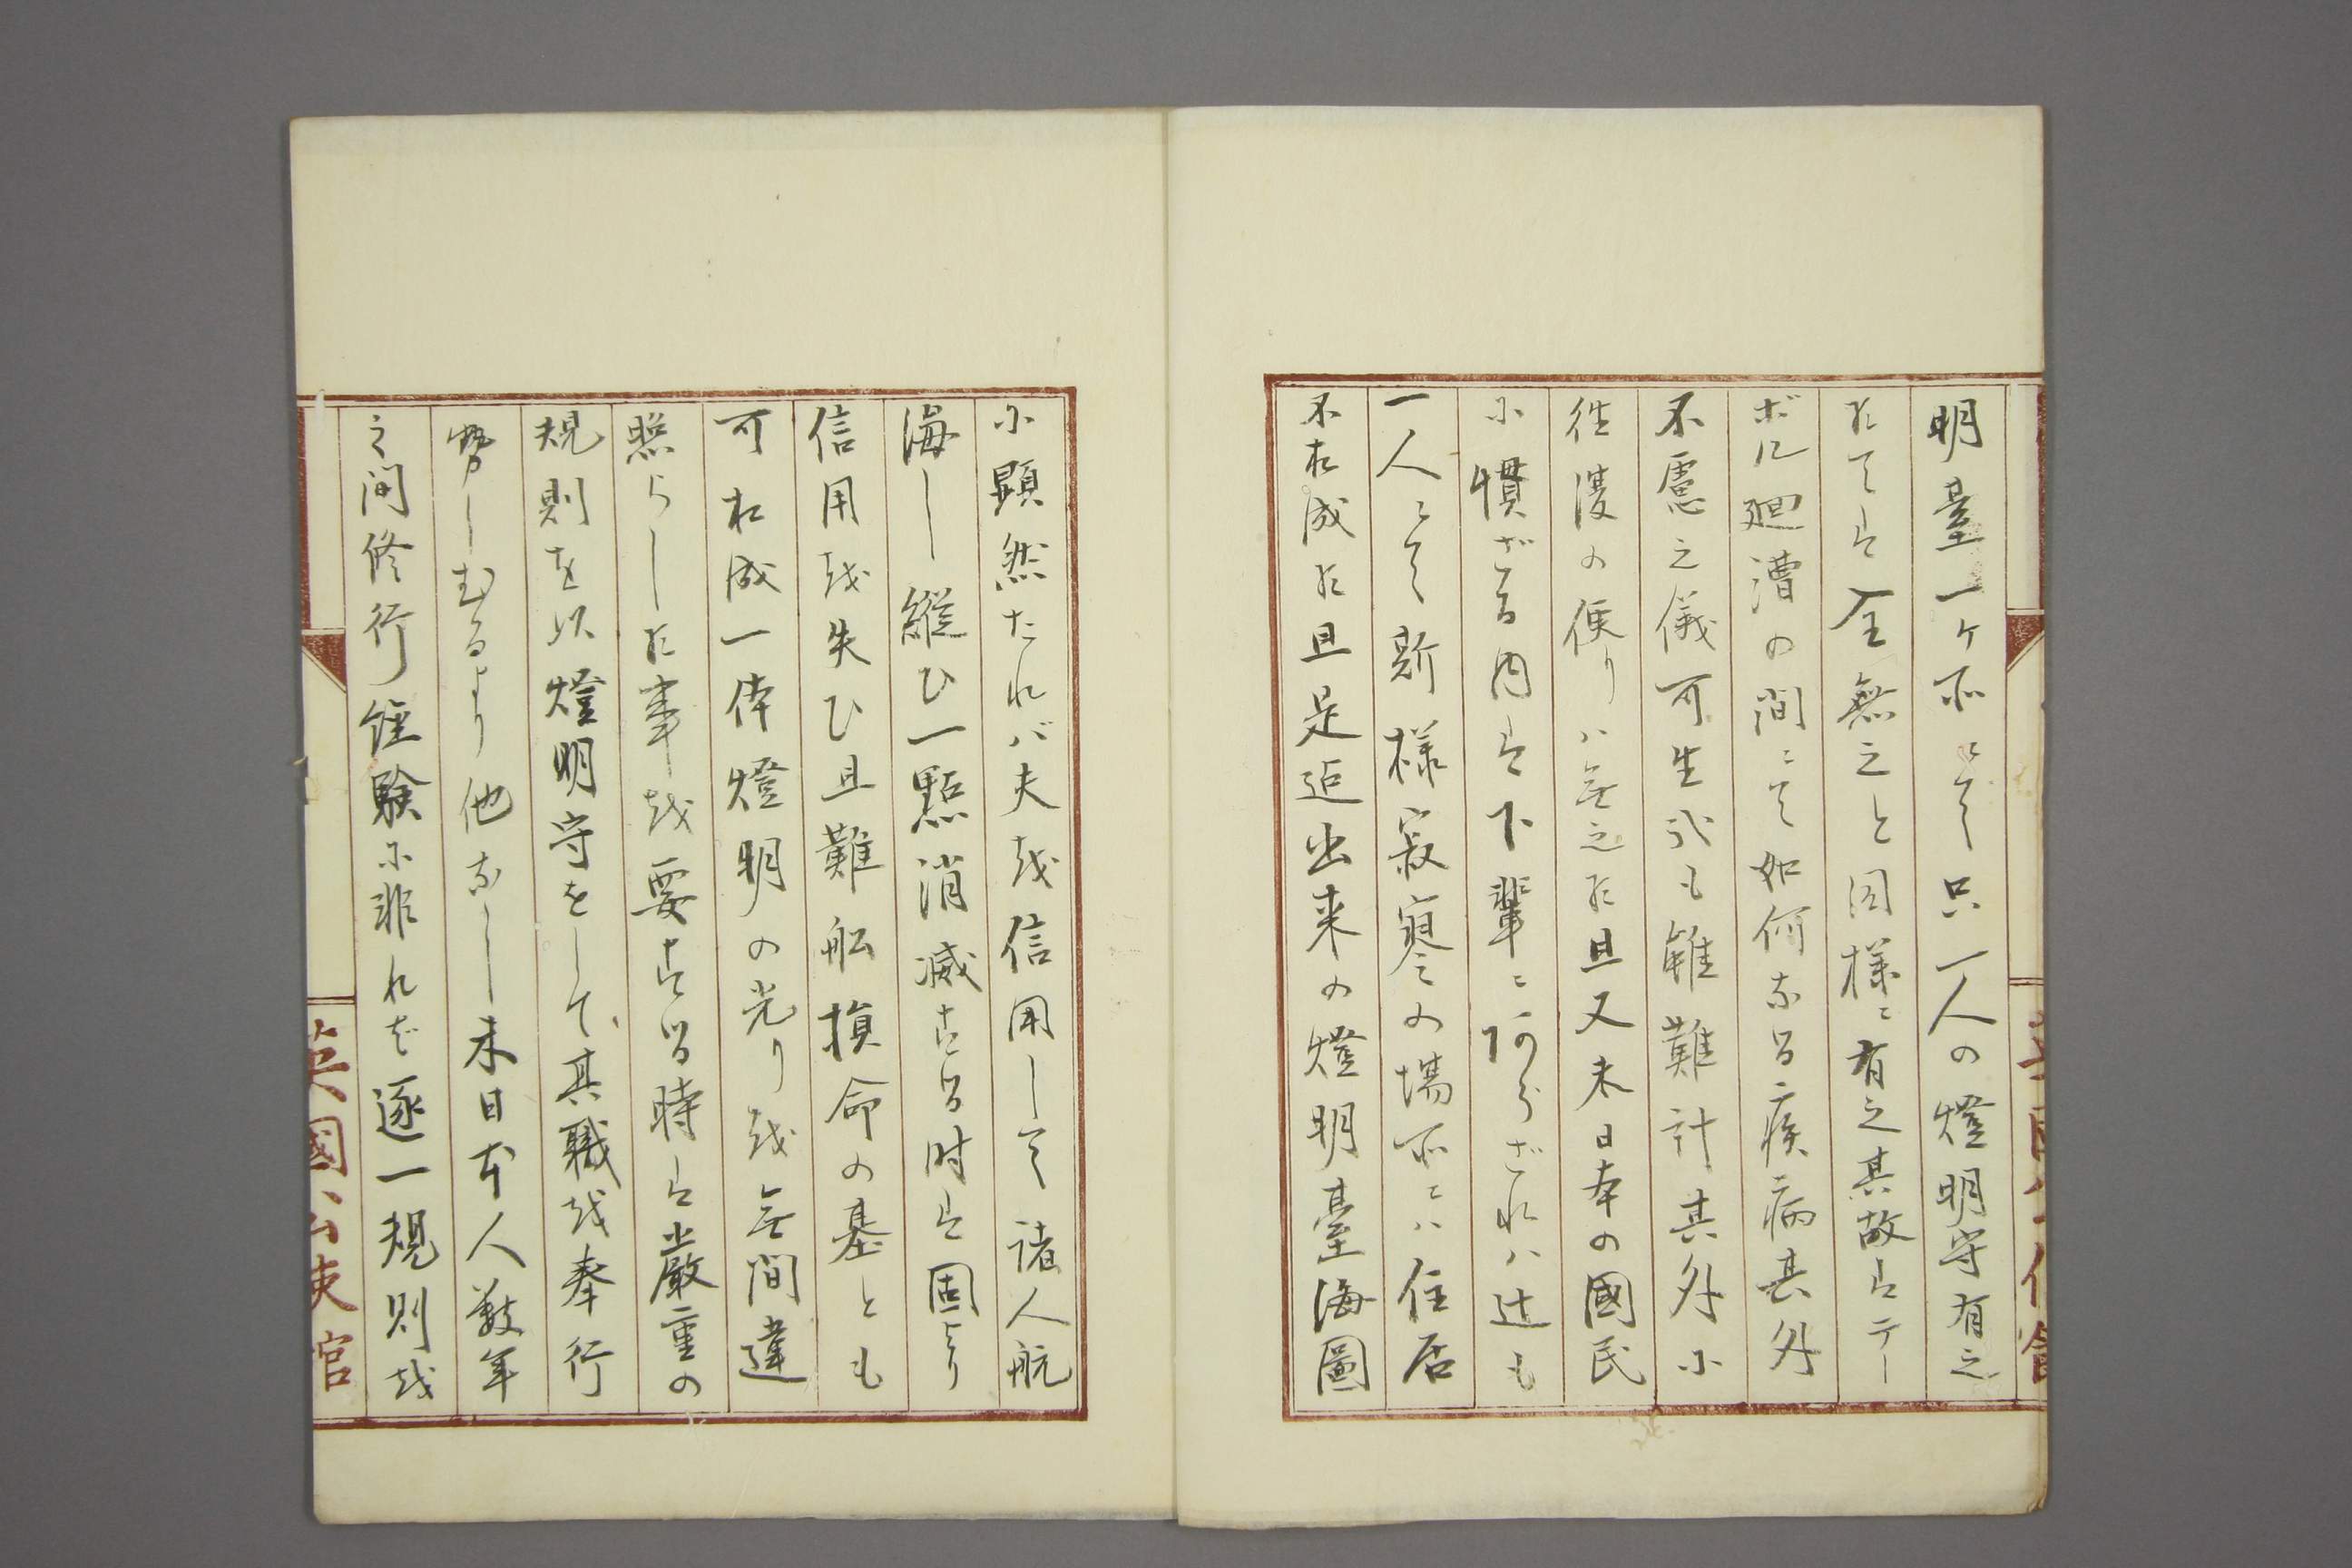 明臺一ケ所ニて只一人の燈明守有之
候てハ全無之と同様ニ有之其故ハテー
ボル廻漕の間ニて如何なる疾病其外
不慮之儀可生哉も難計其外ニ
往復の便りハ無之候且又未日本の國民
に慣ざる内ハ下輩ニあらざれハ迚も
一人ニて斯様寂寥之の場所ニハ住居
不相成候且是迄出来の燈明臺海圖
に顕然たれバ夫を信用して諸人航
海し縦ひ一點消滅する時ハ固より
信用を失ひ且難船損命の基とも
可相成一体燈明の光りを無間違
照らし候事を要する時ハ嚴重の
規則を以燈明守をして其職を奉行
勢しむるより他なし未日本人数年
之間修行経験に非れば逐一規則を
英國公使館